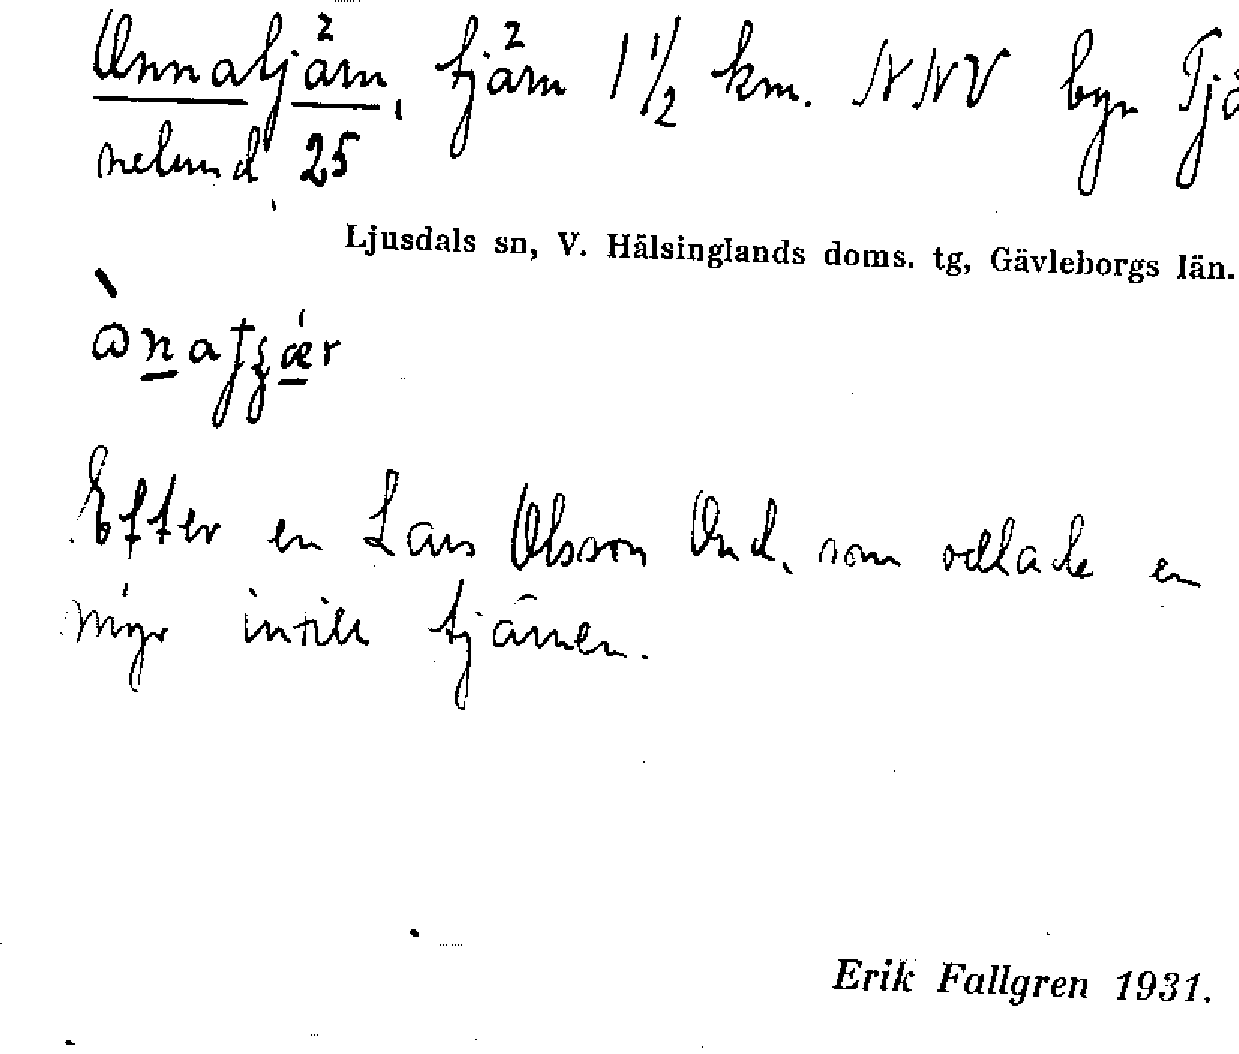 Onnatjärn, tjärn 1 1/2 km. NNV byn Tjä
nelund 25
Ljusdals sn, V. Hälsinglands doms. tg, Gävleborgs län.
Efter en Lars Olsson Ond, som odlade en
myr intill tjärnen.
Erik Fallgren 1931.